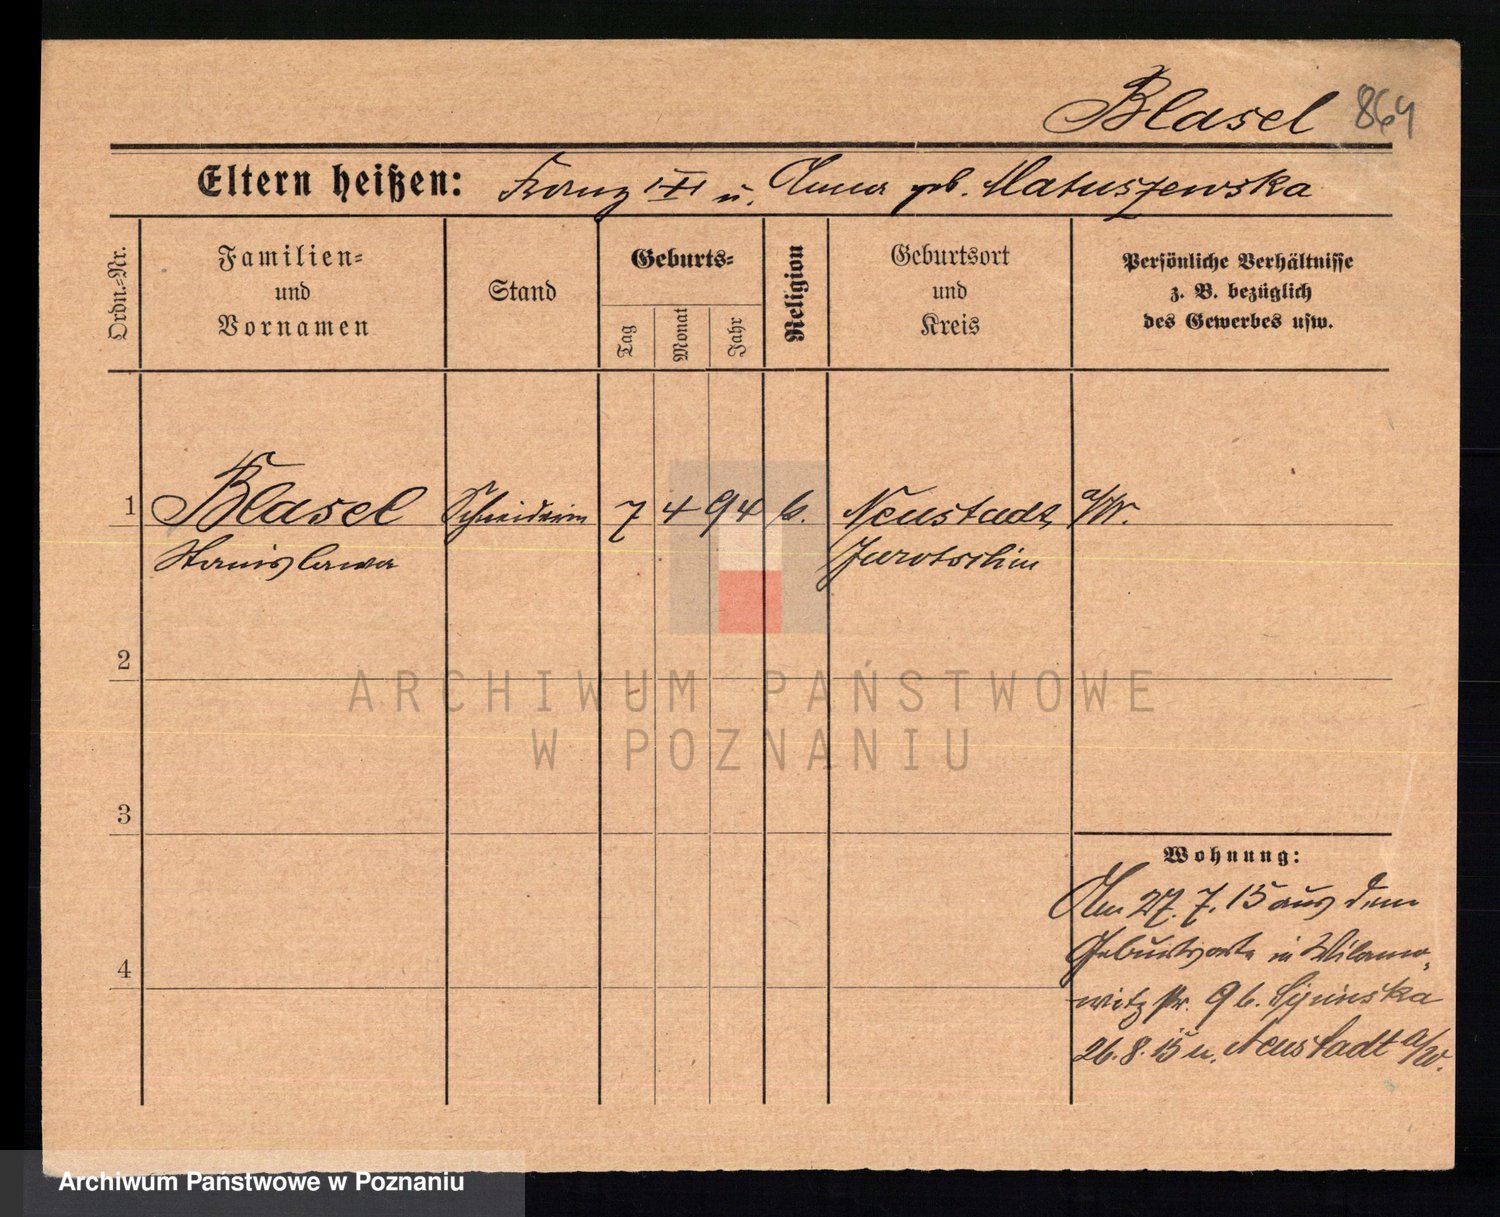 Blasel 864
Eltern heißen: Franz III u. Anna geb. Matuszewska
Ordn.-Nr.
Familien=
und
Vornamen
Stand
Geburts=
Tag
Monat
Jahr
Religion
Geburtsort
und
Kreis
Persönliche Verhältnisse
z. B. bezüglich
des Gewerbes usw.
1 Blasel Schneiderin 7 4 94 k. Neustadt a/W.
Stanislawa Jarotschin
2
ARCHIWUM PAŃSTWOWE
W POZNANIU
3
Wohnung:
Am 27. 7. 15 aus dem
Geburtsorte in Wilamo-
witz str. 9 b.
4
26. 8. 15 n. Neustadt a/W.
Archiwum Państwowe w Poznaniu